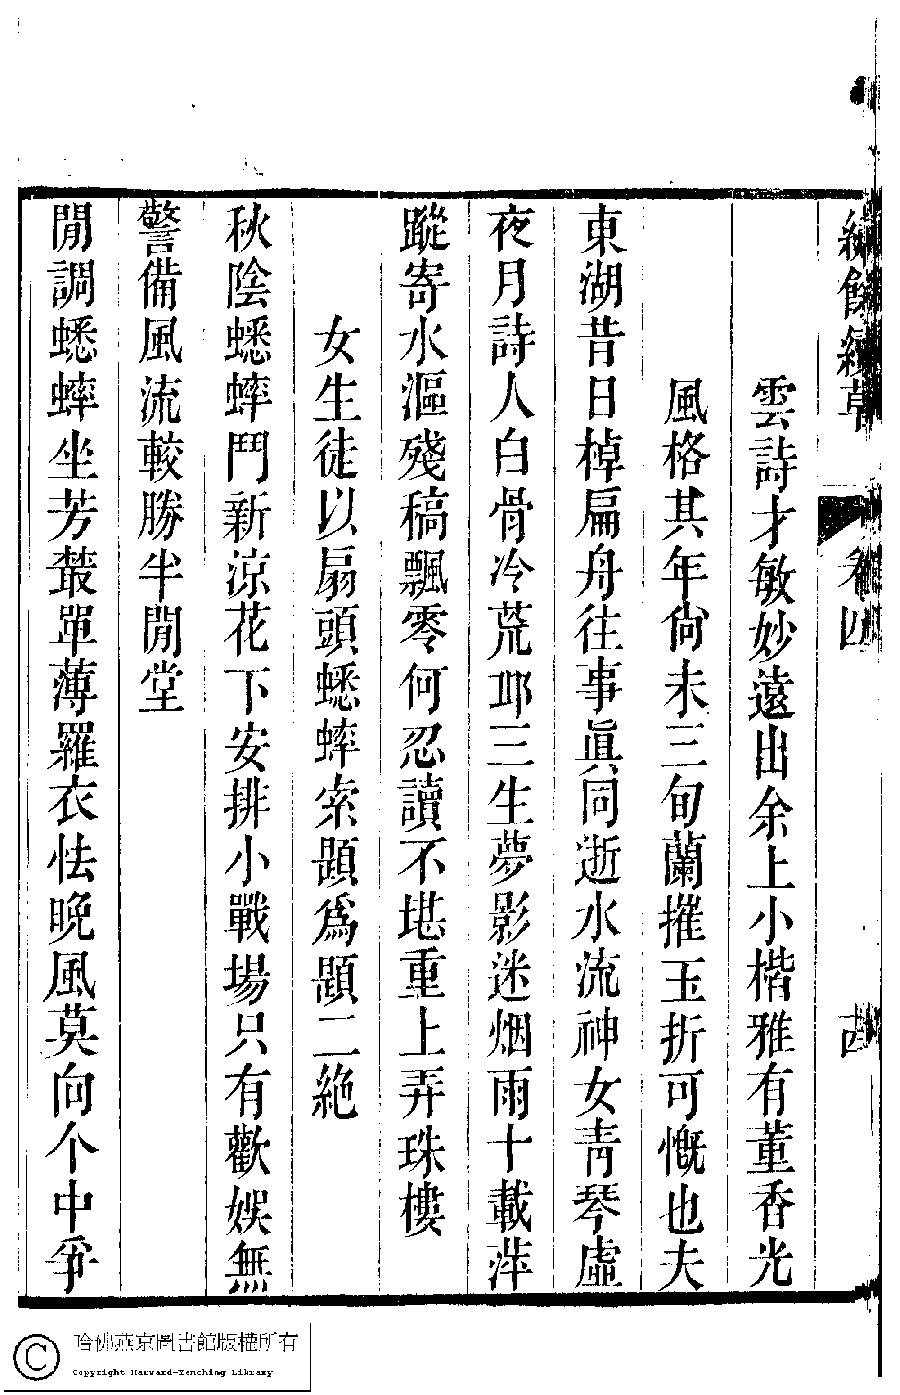 續草
卷四
雲詩才敏妙遠出余上小楷雅有董香光
風格其年尙未三旬蘭摧玉折可慨也夫
東湖昔日棹扁舟往事眞同逝水流神女靑琴虛
夜月詩人白骨冷荒邱三生夢影迷烟雨十載萍
蹤寄水漚殘稿飄零何忍讀不堪重上弄珠樓
女生徒以扇頭蟋蟀索題爲題二絶
秋陰蟋蟀鬥新涼花下安排小戰場只有歡娛無
警備風流較勝半閒堂
閒調蟋蟀坐芳叢單薄羅衣怯晚風莫向个中爭
哈佛燕京圖書館版權所有
Copyright Harvard-Yenching Library